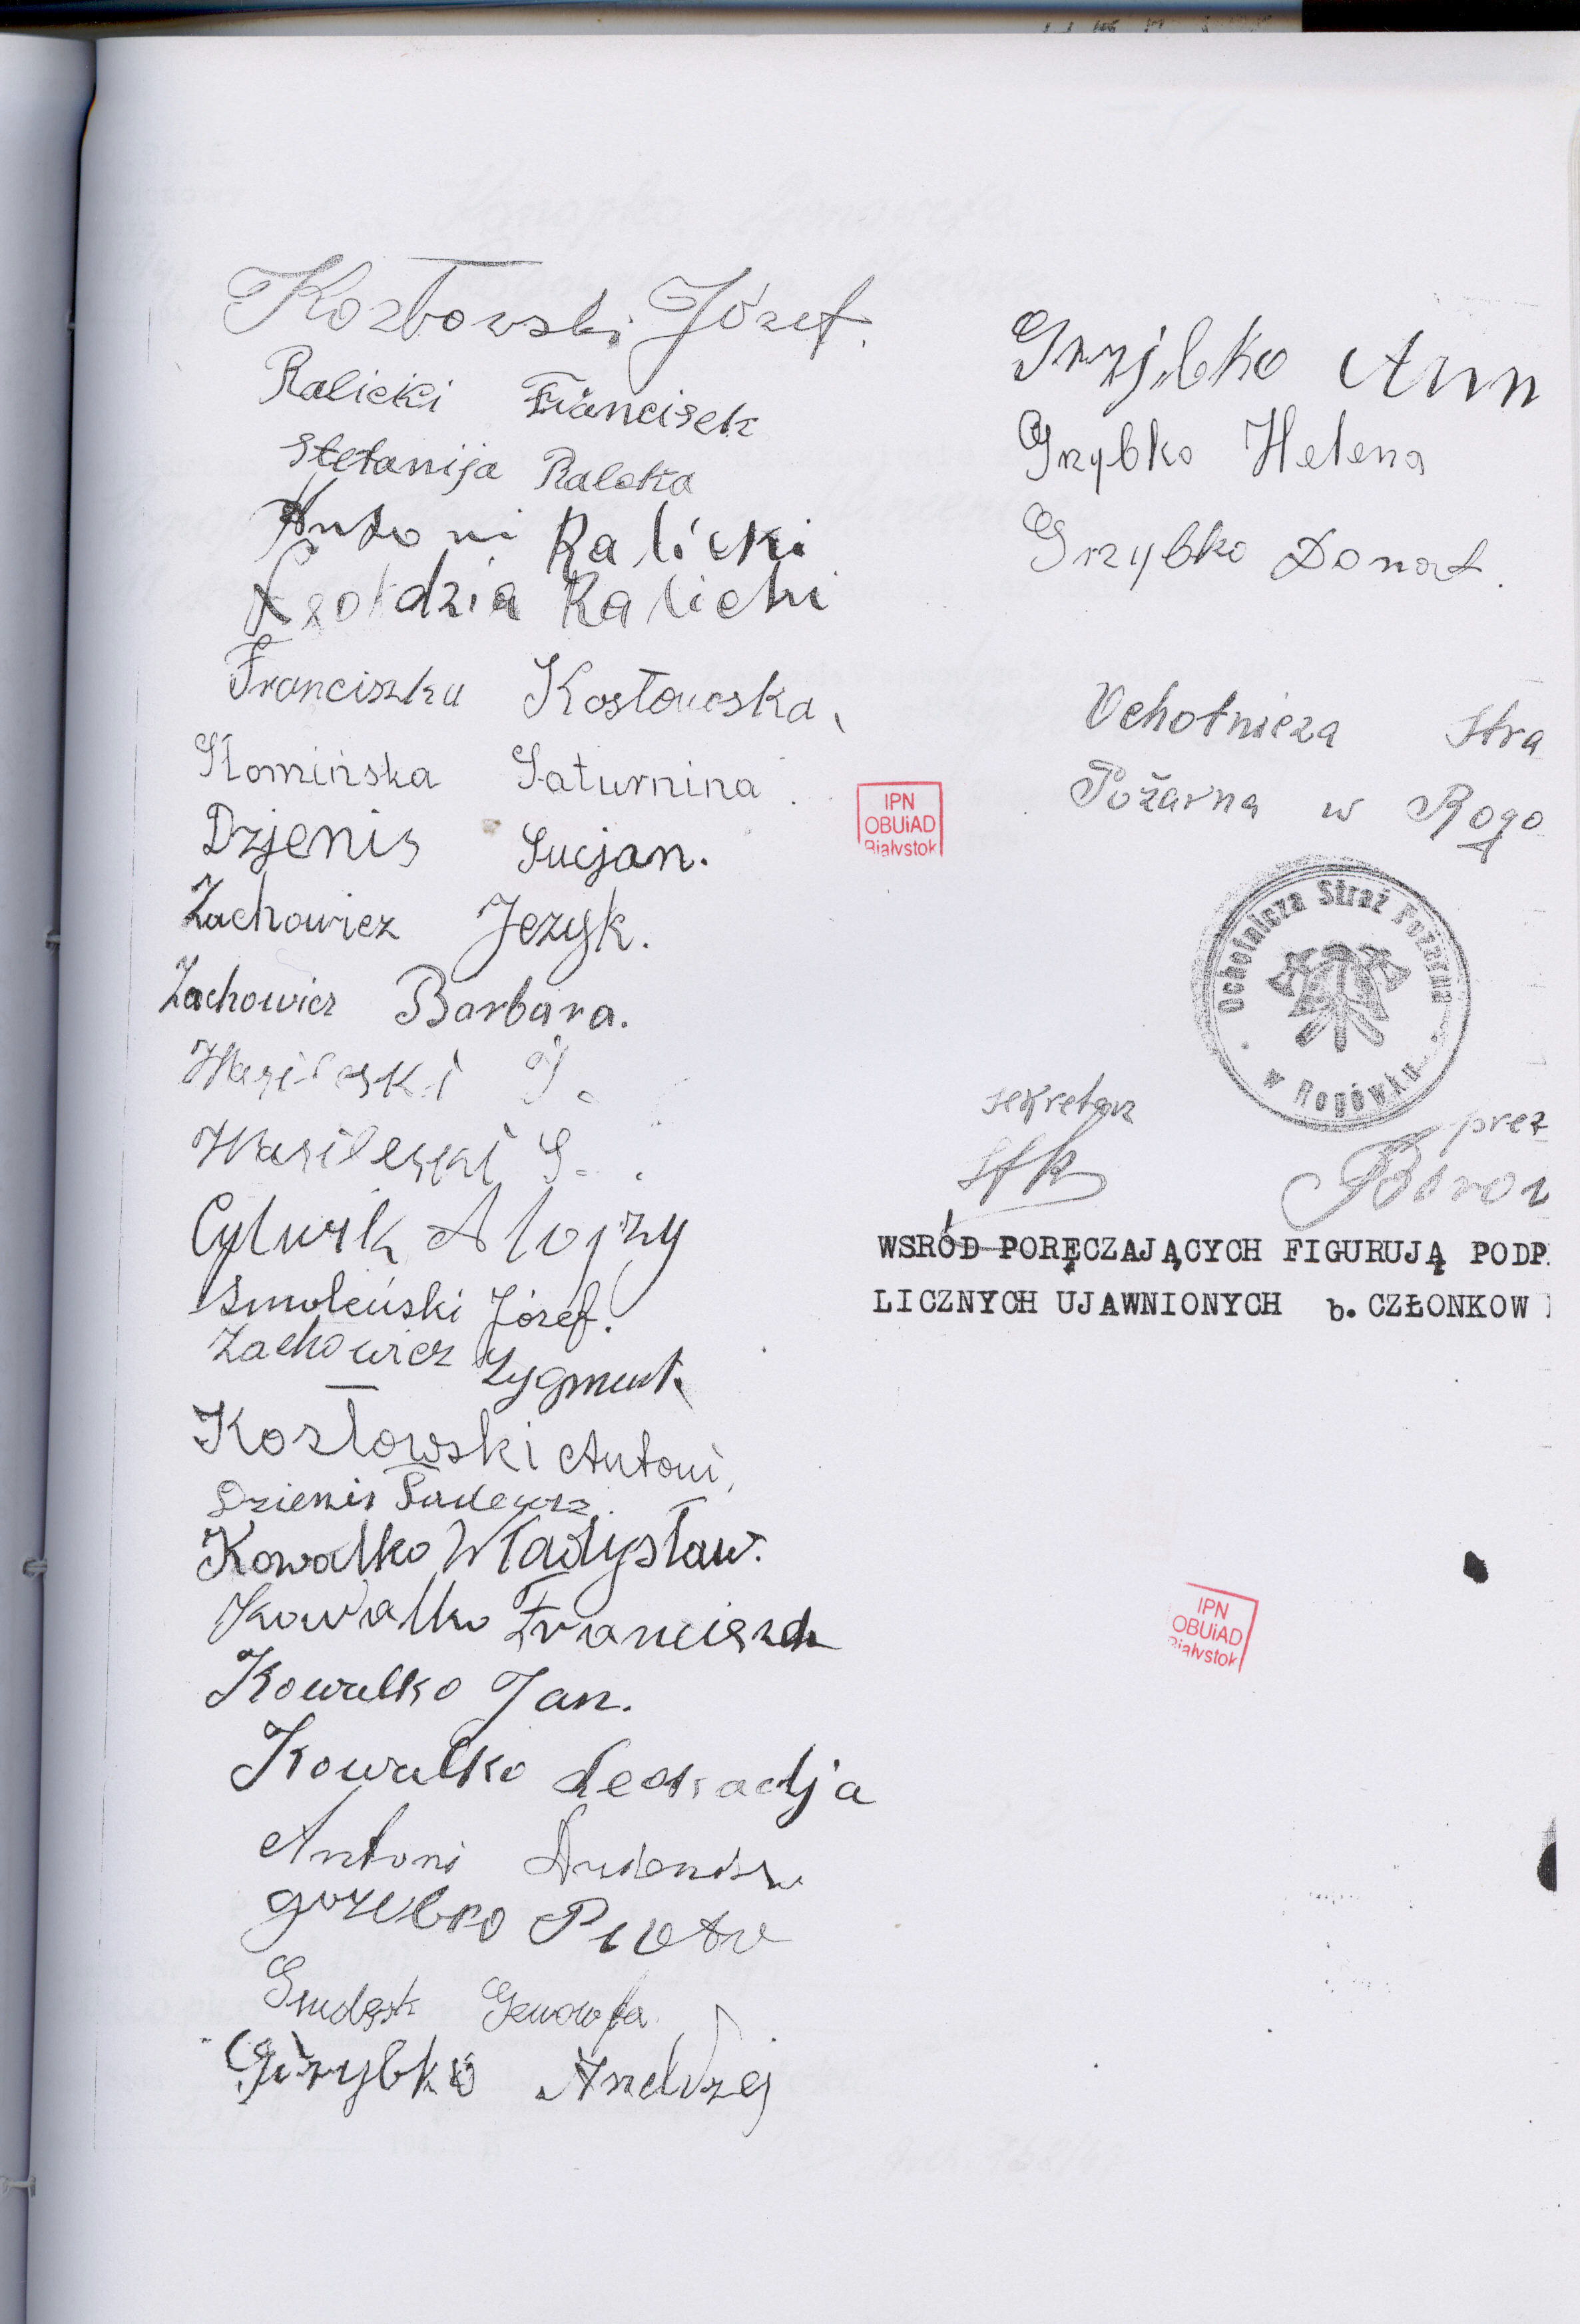 Kozłowski Józef.
Ralicki Franciszek
Stefanija Ralcka
Antoni Ralicki
Ralicki
Franciszka Kosłowska,
Słomińska Saturnina.
Dzjenis Lucjan.
Zachowicz Jezyk.
Zachowicz Barbara.
Wasileski J.
Wasileski S.
Cylwik Alojzy
Smoleński Józef.
Zachowicz Zygmunt.
Kozłowski Antoni,
Dzienis Tadeusz.
Kowalko Władysław.
Kowalko Franciszek
Kowalko Jan.
Kowalko Leokadja
Antoni Dzienisz
Piotr
Genowefa
Grzybko Andrzej
Grzybko Ann
Grzybko Helena
Grzybko Donat.
Ochotnicza Stra
Pożarna w Rogo
IPN
OBUiAD
Białystok
Ochotnicza Straż Pożarna
w Rogówku
sekretarz
prez
WSRÓD PORĘCZAJĄCYCH FIGURUJĄ PODP
LICZNYCH UJAWNIONYCH b. CZŁONKOW
IPN
OBUiAD
Białystok